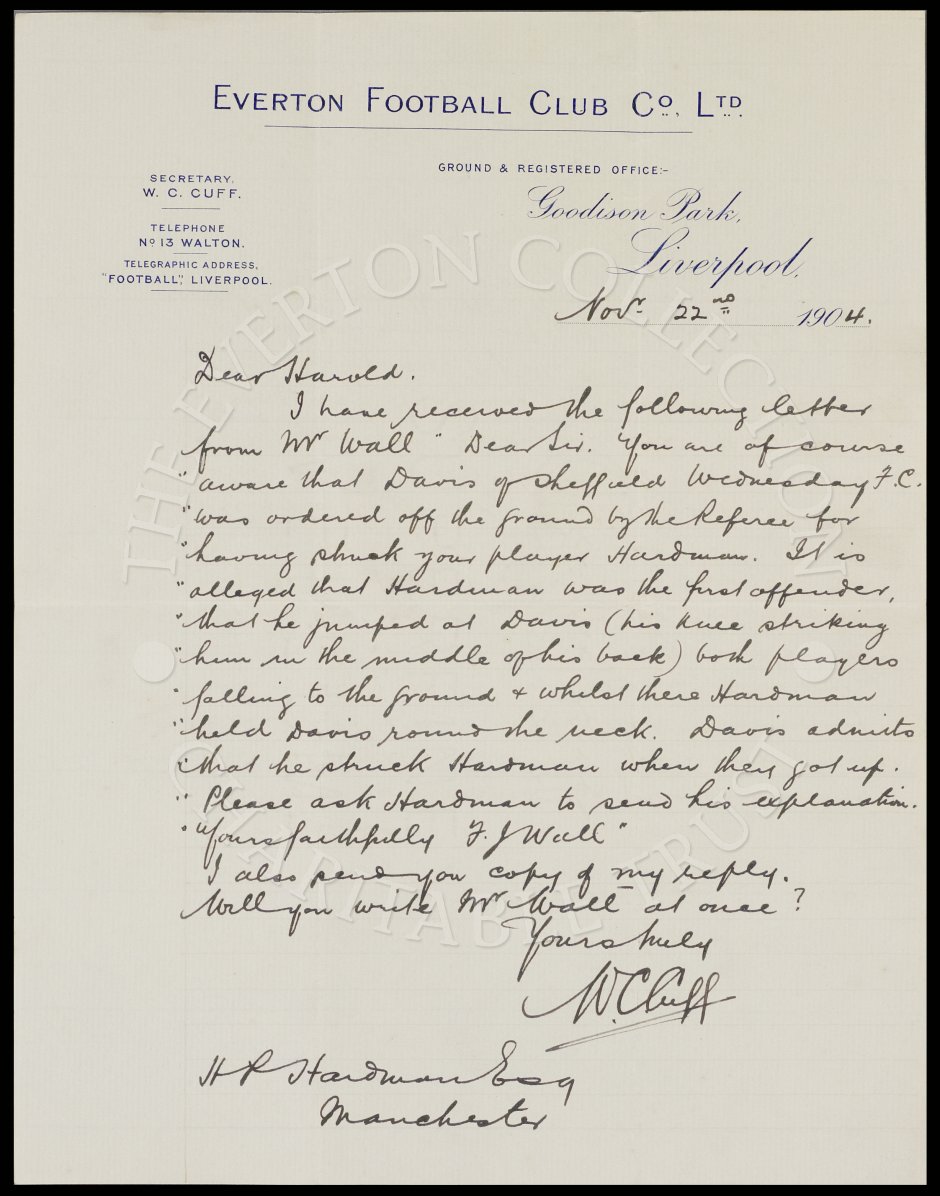 EVERTON FOOTBALL CLUB Co., LTD.
SECRETARY.
W. C. CUFF.
TELEPHONE
No 13 WALTON.
TELEGRAPHIC ADDRESS,
"FOOTBALL", LIVERPOOL.
GROUND & REGISTERED OFFICE:-
Goodison Park,
Liverpool,
Novr. 22nd 1904.
Dear Harold.
I have received the following letter
from Mr Wall "Dear Sir. You are of course
"aware that Davis of Sheffield Wednesday F.C.
"was ordered off the ground by the Referee for
"having struck your player Hardman. It is
"alleged that Hardman was the first offender,
"that he jumped at Davis (his knee striking
"him in the middle of his back) both players
"falling to the ground & whilst there Hardman
"held Davis round the neck. Davis admits
"that he struck Hardman when they got up.
"Please ask Hardman to send his explanation.
"Yours faithfully F. J Wall"
I also send you copy of my reply.
Will you write Mr Wall at once?
Yours truly
W. C Cuff
H P Hardman Esq
Manchester
THE EVERTON COLLECTION
CHARITABLE TRUST